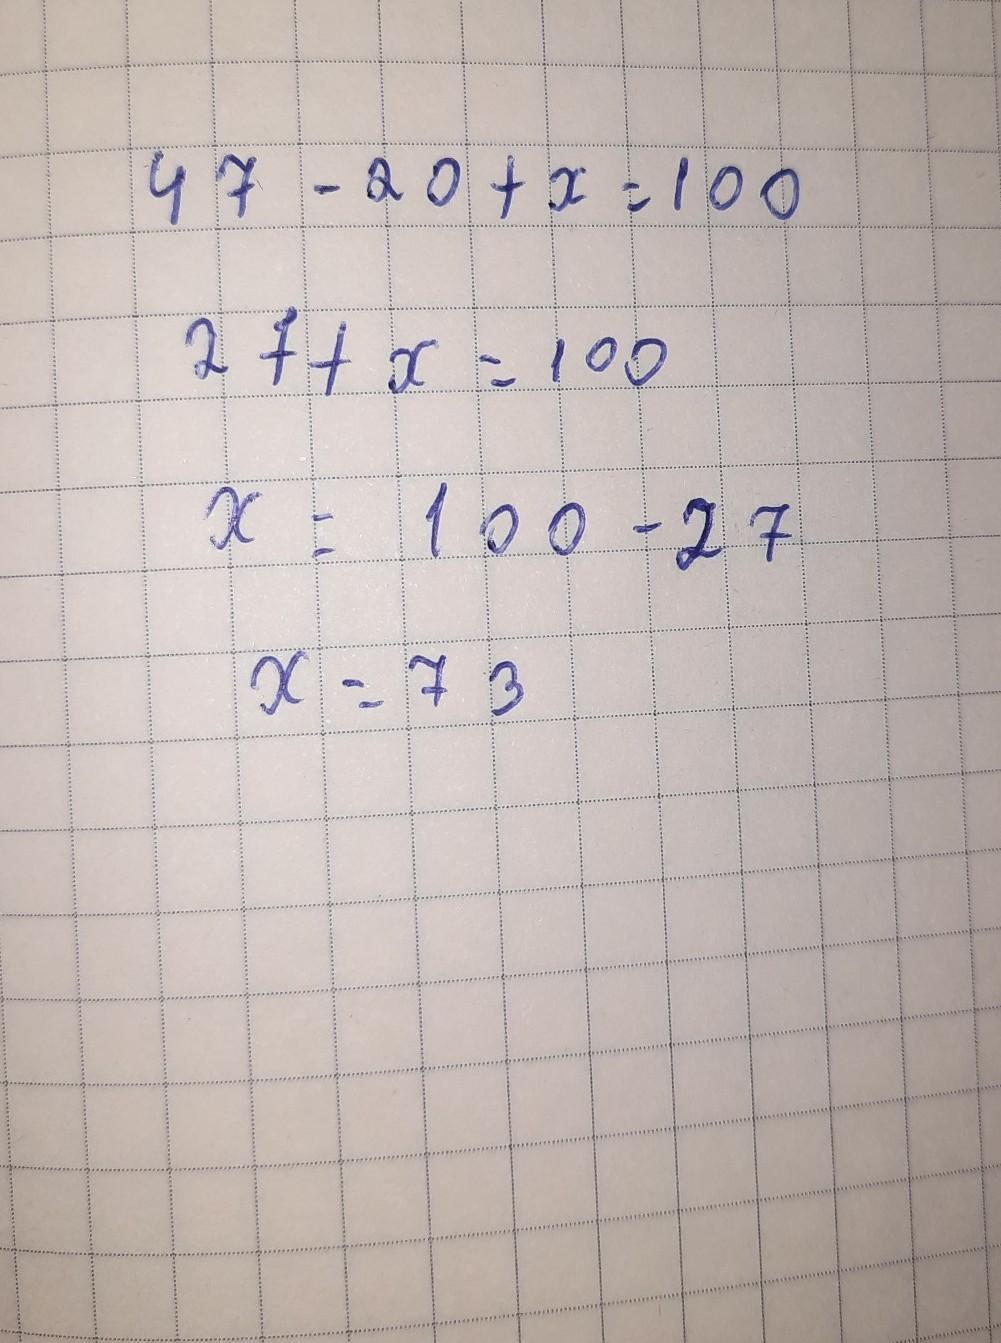 47 - 20 + x = 100
27 + x = 100
x = 100 - 27
x = 73